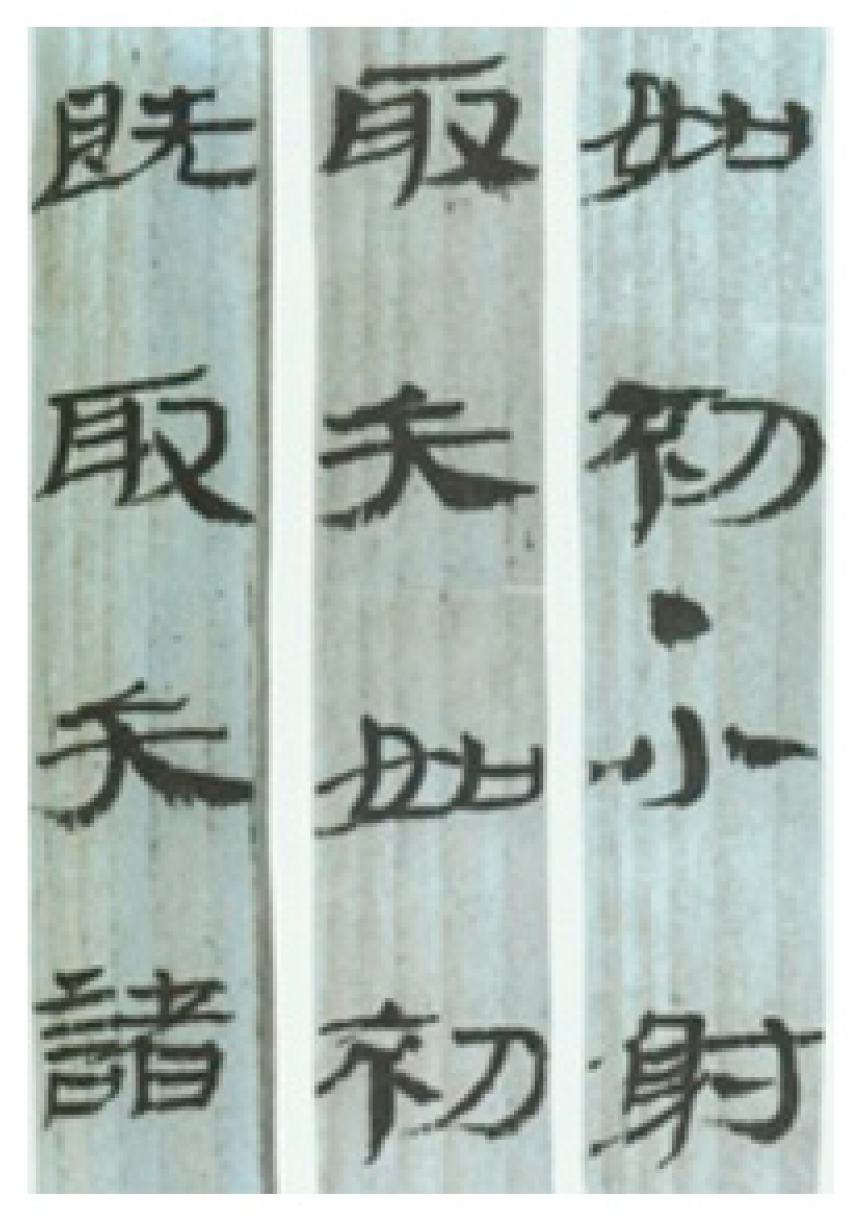 如初●小射
取矢如初
既取矢諸